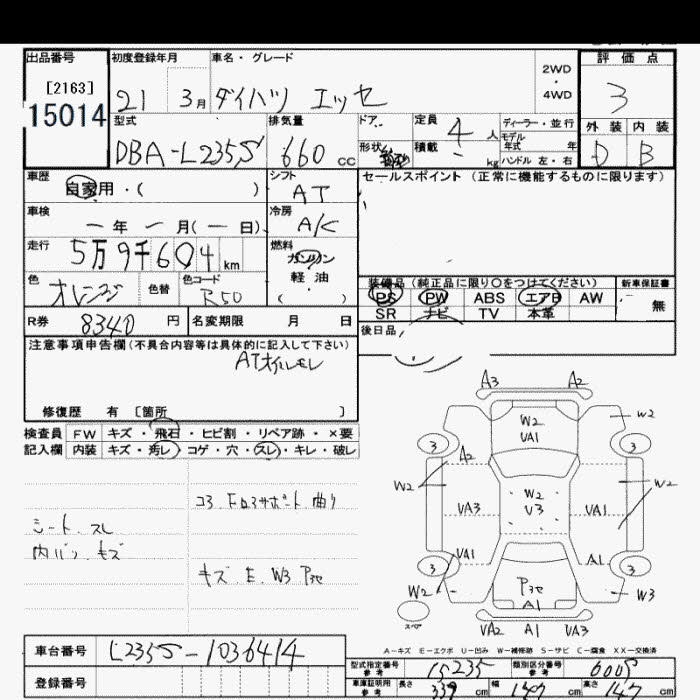 出品番号 初度登録年月 車名・グレード 2WD・4WD 評価点
[2163]
15014
21 3月 ダイハツ エッセ 3
型式 排気量 ドア 定員 ディーラー・並行 外装 内装
モデル
DBA-L235S 660cc 形状 積載 4人 年式 年 D B
kg ハンドル 左・右
車歴 シフト セールスポイント(正常に機能するものに限ります)
自家用・( ) AT
車検 冷房
ー年ー月(ー日) A/C
走行 燃料
5万9千604km ガソリン
軽・油
色 色替 色コード ( ) 装備品(純正品に限り○をつけてください) 新車保証書
オレンジ R50 PS PW ABS エアB AW 無
SR ナビ TV 本革
R券 8340円 名変期限 月 日 後日品
注意事項申告欄(不具合内容等は具体的に記入して下さい)
ATオイルモレ
修復歴 有 [箇所 ]
検査員 FW キズ・飛石・ヒビ割・リペア跡・×要
記入欄 内装 キズ・汚レ・コゲ・穴・スレ・キレ・破レ
A3 A2
W2 VA1 W2
3 3
A2
W2 W2
コアF ロアサポート曲り
W2
VA3 V3 VA1
シート スレ
内バリ キズ
VA1 A1
キズ E W3 P3セ
3 3
W2 P3セ W3
A1
スペア
VA2 A1 VA3
A-キズ E-エクボ U-凹み W-補修跡 S-サビ C-腐食 XX-交換済
車台番号 L235S-1036414
型式指定番号 参考 15235 類別区分番号 参考 0005
登録番号 車庫証明用 参考 長さ 339cm 幅 147cm 高さ 147cm